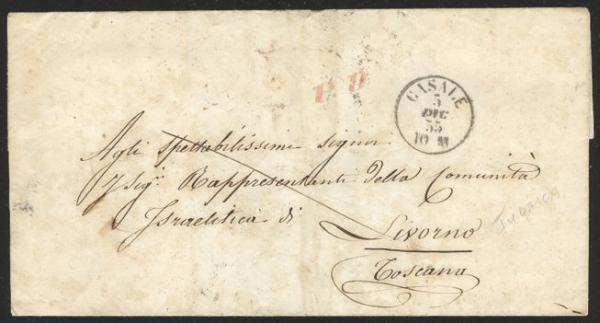 P.P.
CASALE
5
DIC
55
10 M
Agli spettabilissimi signori
I Sigi Rappresentanti della Comunità
Israelitica di
Livorno
Toscana
JUDAICA